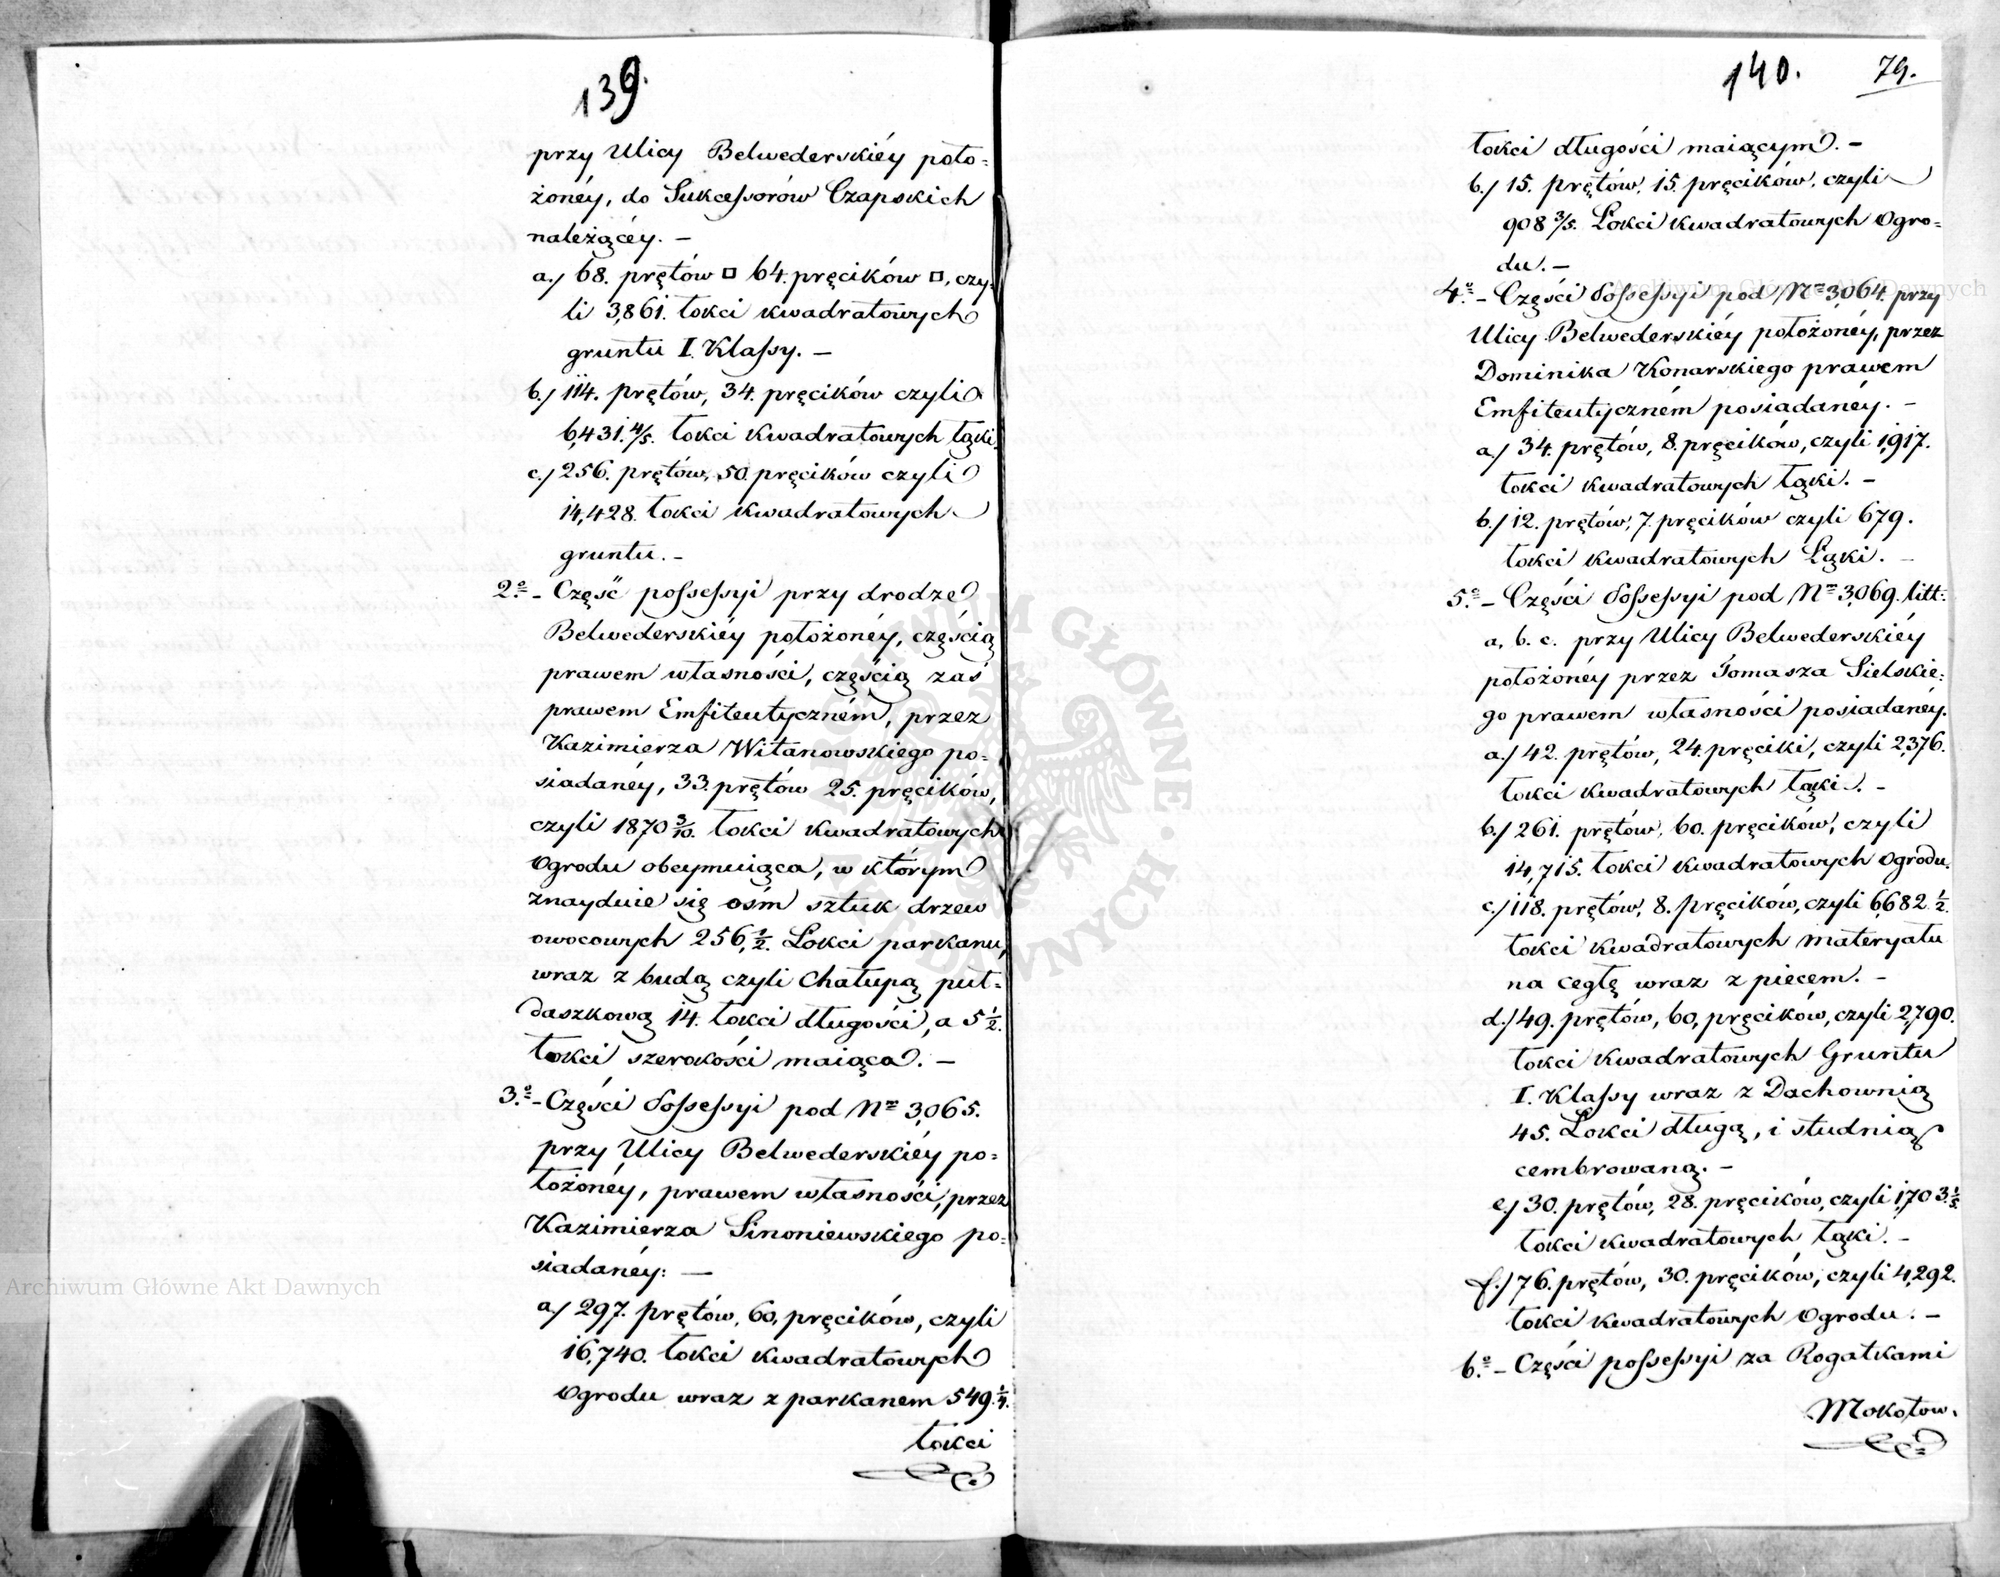 139.
przy Ulicy Belwederskiéy poło=
żonéy, do Sukcessorów Czapskich
należącéy. —
a./ 68. prętów □ 64. pręcików □, czy=
li 3,861. łokci kwadratowych
gruntu I. Klassy. —
b./ 114. prętów, 34. pręcików czyli
6,431. 4/5. łokci kwadratowych łąki.
c./ 256. prętów, 50. pręcików czyli
14,428. łokci kwadratowych
gruntu. —
2.° — Część possessyi przy drodze
Belwederskiéy położonéy, częścią
prawem własności, częścią zaś
prawem Emfiteutyczném, przez
Kazimierza Witanowskiego po=
siadanéy, 33. prętów 25. pręcików,
czyli 1870 3/10. łokci kwadratowych
Ogrodu obeymuiąca, w którym
znayduie się ośm sztuk drzew
owocowych 256, 1/2. Łokci parkanu,
wraz z budą czyli Chałupą puł=
daszkową 14. łokci długości, a 5 1/2.
łokci szerokości maiąca. —
3.° — Części Possessyi pod Nrm 3,065.
przy Ulicy Belwederskiéy po=
łożonéy, prawem własności, przez
Kazimierza Sinoniewskiego po=
siadanéy: —
a./ 297. prętów, 60, pręcików, czyli
16,740. łokci kwadratowych
Ogrodu wraz z parkanem 549. 1/4.
łokci
140. 79.
łokci długości maiącym. —
b./ 15. prętów, 15. pręcików, czyli
908 3/5. Łokci kwadratowych Ogro=
du. —
4.° — Części Possessyi pod Nrm 3,064. przy
Ulicy Belwederskiéy położonéy, przez
Dominika Konarskiego prawem
Emfiteutyczném posiadanéy. —
a./ 34. prętów, 8. pręcików, czyli 1,917.
łokci kwadratowych łąki. —
b./ 12. prętów, 7. pręcików czyli 679.
łokci kwadratowych Łąki. —
5.° — Części Possessyi pod Nrm 3,069. litt:
a, b. c. przy Ulicy Belwederskiéy
położonéy przez Tomasza Sielskie=
go prawem własności posiadanéy.
a./ 42. prętów, 24. pręciki, czyli 2,376.
łokci kwadratowych łąki. —
b./ 261. prętów, 60. pręcików, czyli
14,715. łokci kwadratowych Ogrodu.
c./ 118. prętów, 8. pręcików, czyli 6,682 1/2.
łokci kwadratowych materyału
na cegłę wraz z piecem. —
d./ 49. prętów, 60, pręcików, czyli 2,790.
łokci kwadratowych Gruntu
I. Klassy wraz z Dachownią
45. Łokci długą, i studnią
cembrowaną. —
e./ 30. prętów, 28. pręcików, czyli 1,703. 1/5
łokci kwadratowych łąki. —
f./ 76. prętów, 30. pręcików, czyli 4,292.
łokci kwadratowych Ogrodu. —
6.° — Części possessyi za Rogatkami
Mokotow.
Archiwum Główne Akt Dawnych
Archiwum Główne Akt Dawnych
ARCHIWUM GŁÓWNE AKT DAWNYCH